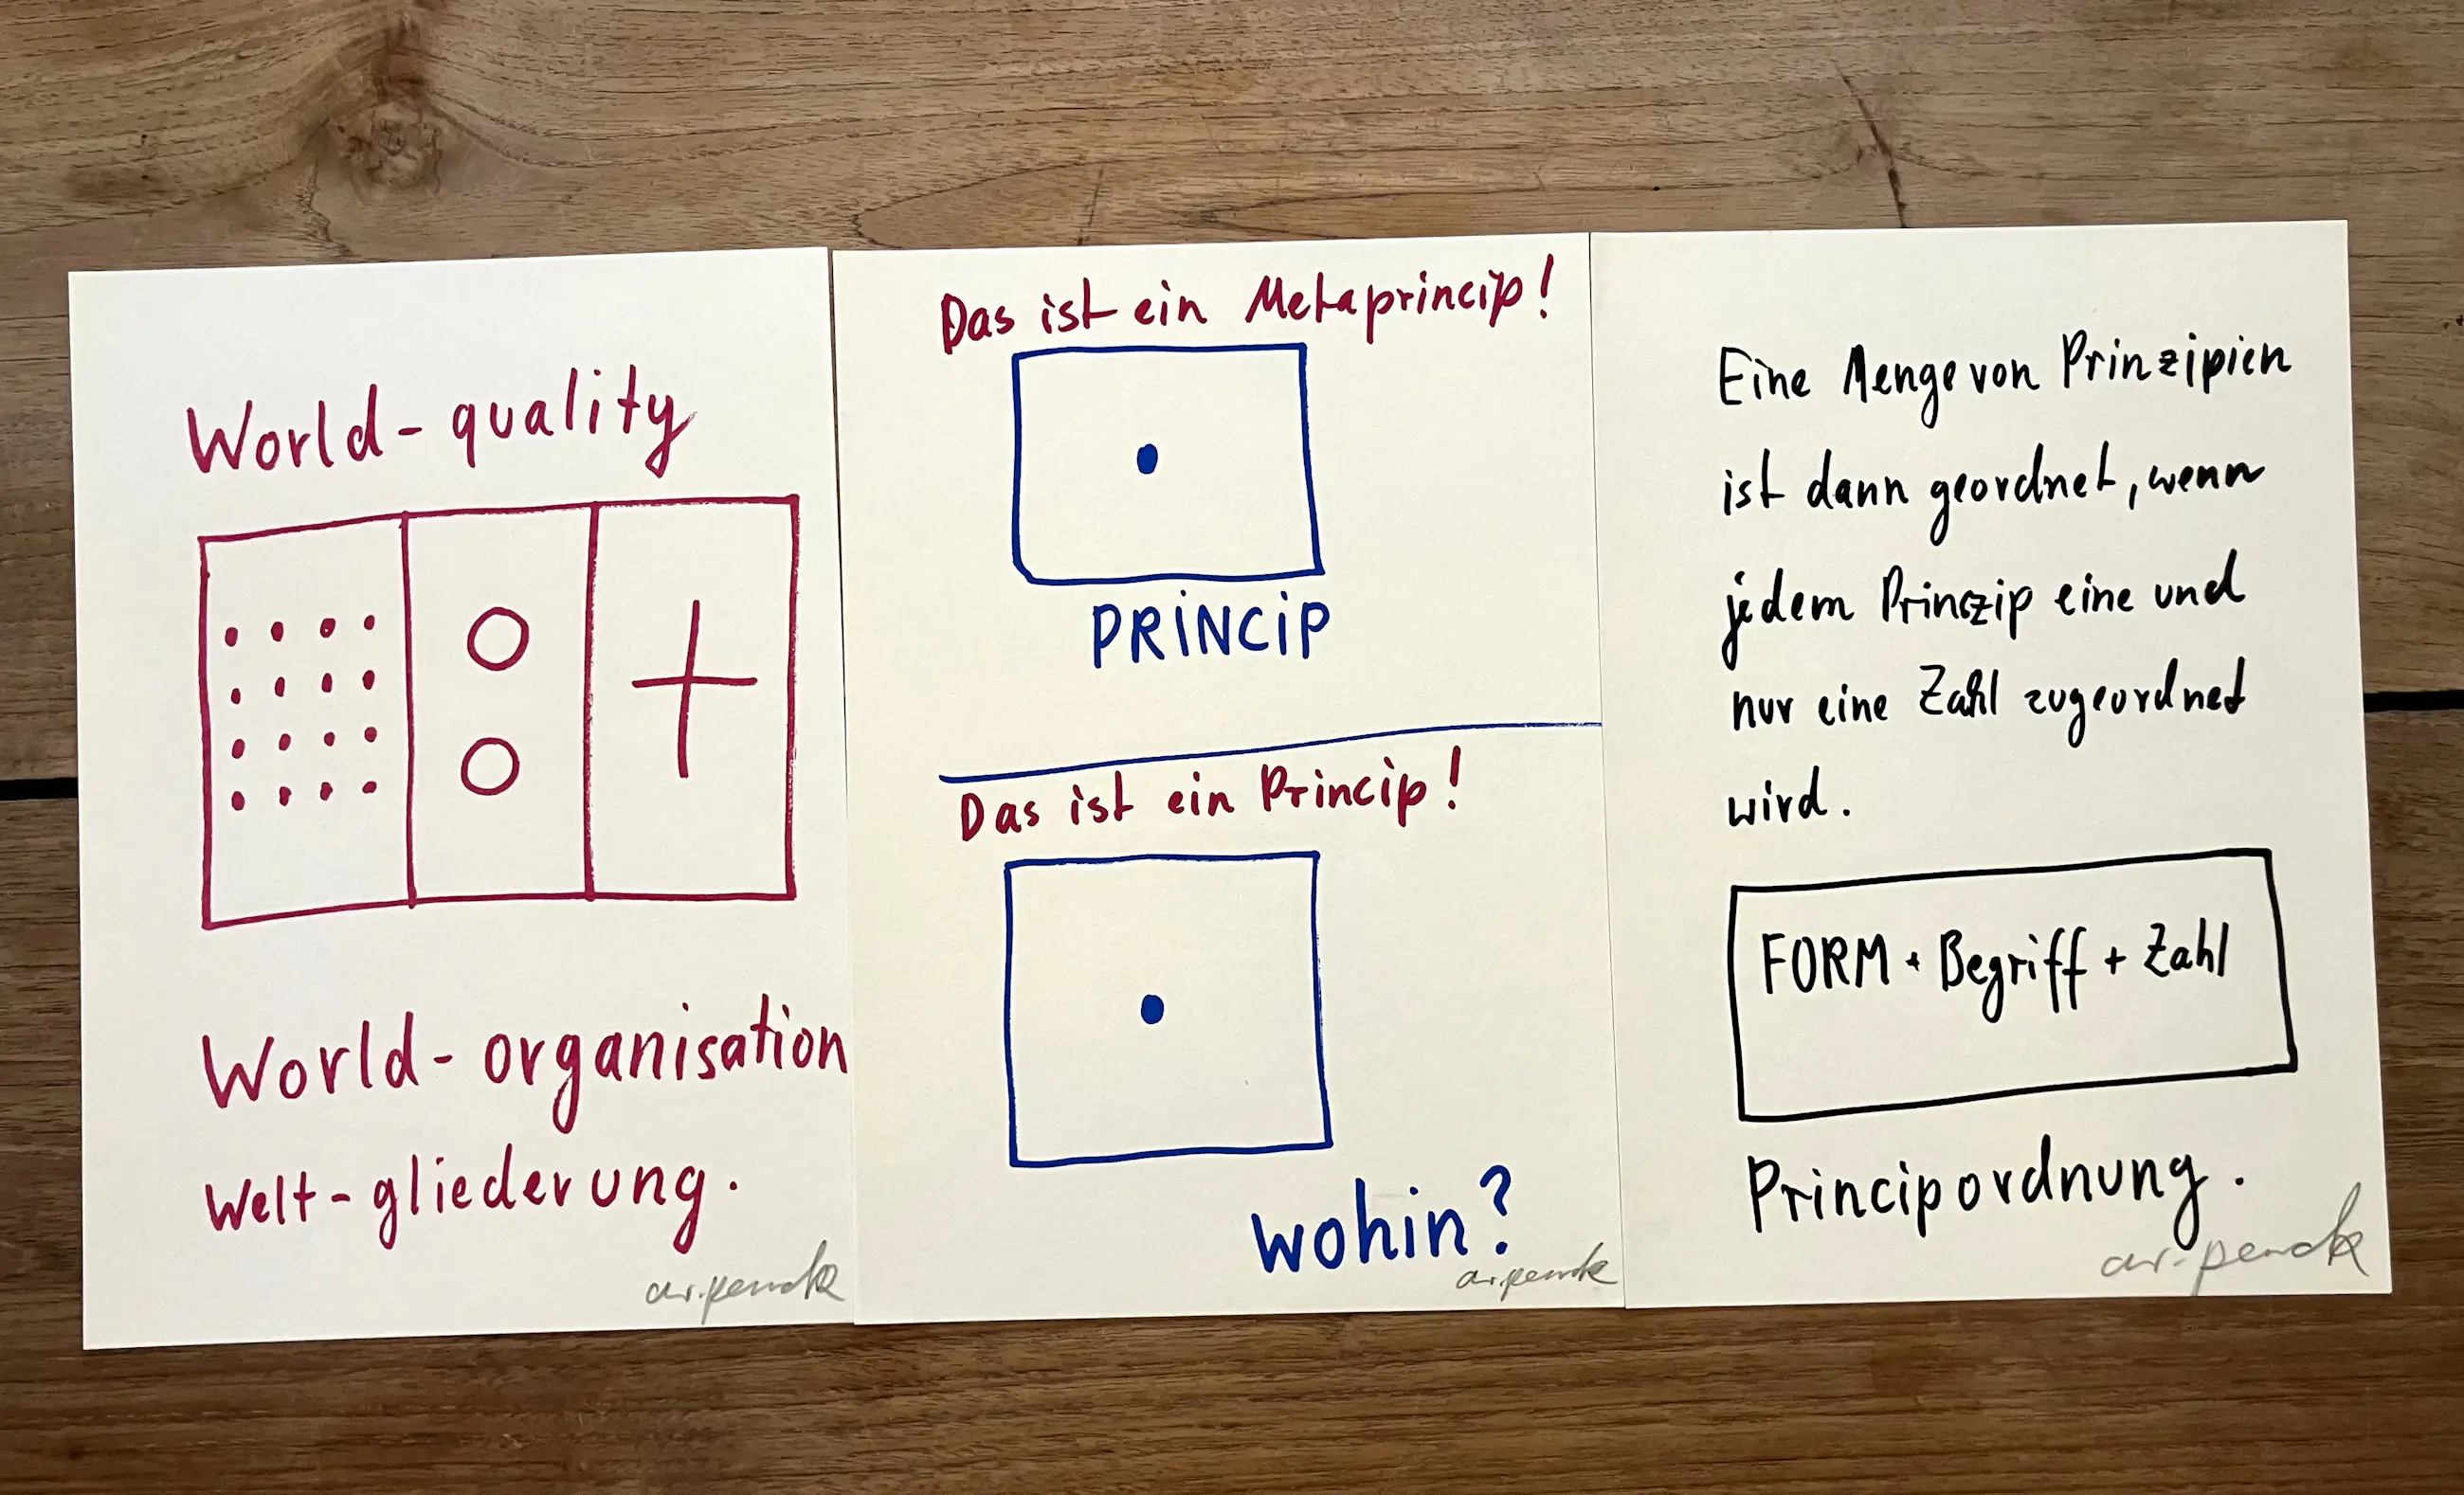 World-quality
World-organisation
Welt-gliederung.
ar.penck
Das ist ein Metaprincip!
PRiNCiP
Das ist ein Princip!
wohin?
ar.penck
Eine Menge von Prinzipien
ist dann geordnet, wenn
jedem Prinzip eine und
nur eine Zahl zugeordnet
wird.
FORM + Begriff + Zahl
Principordnung.
ar.penck